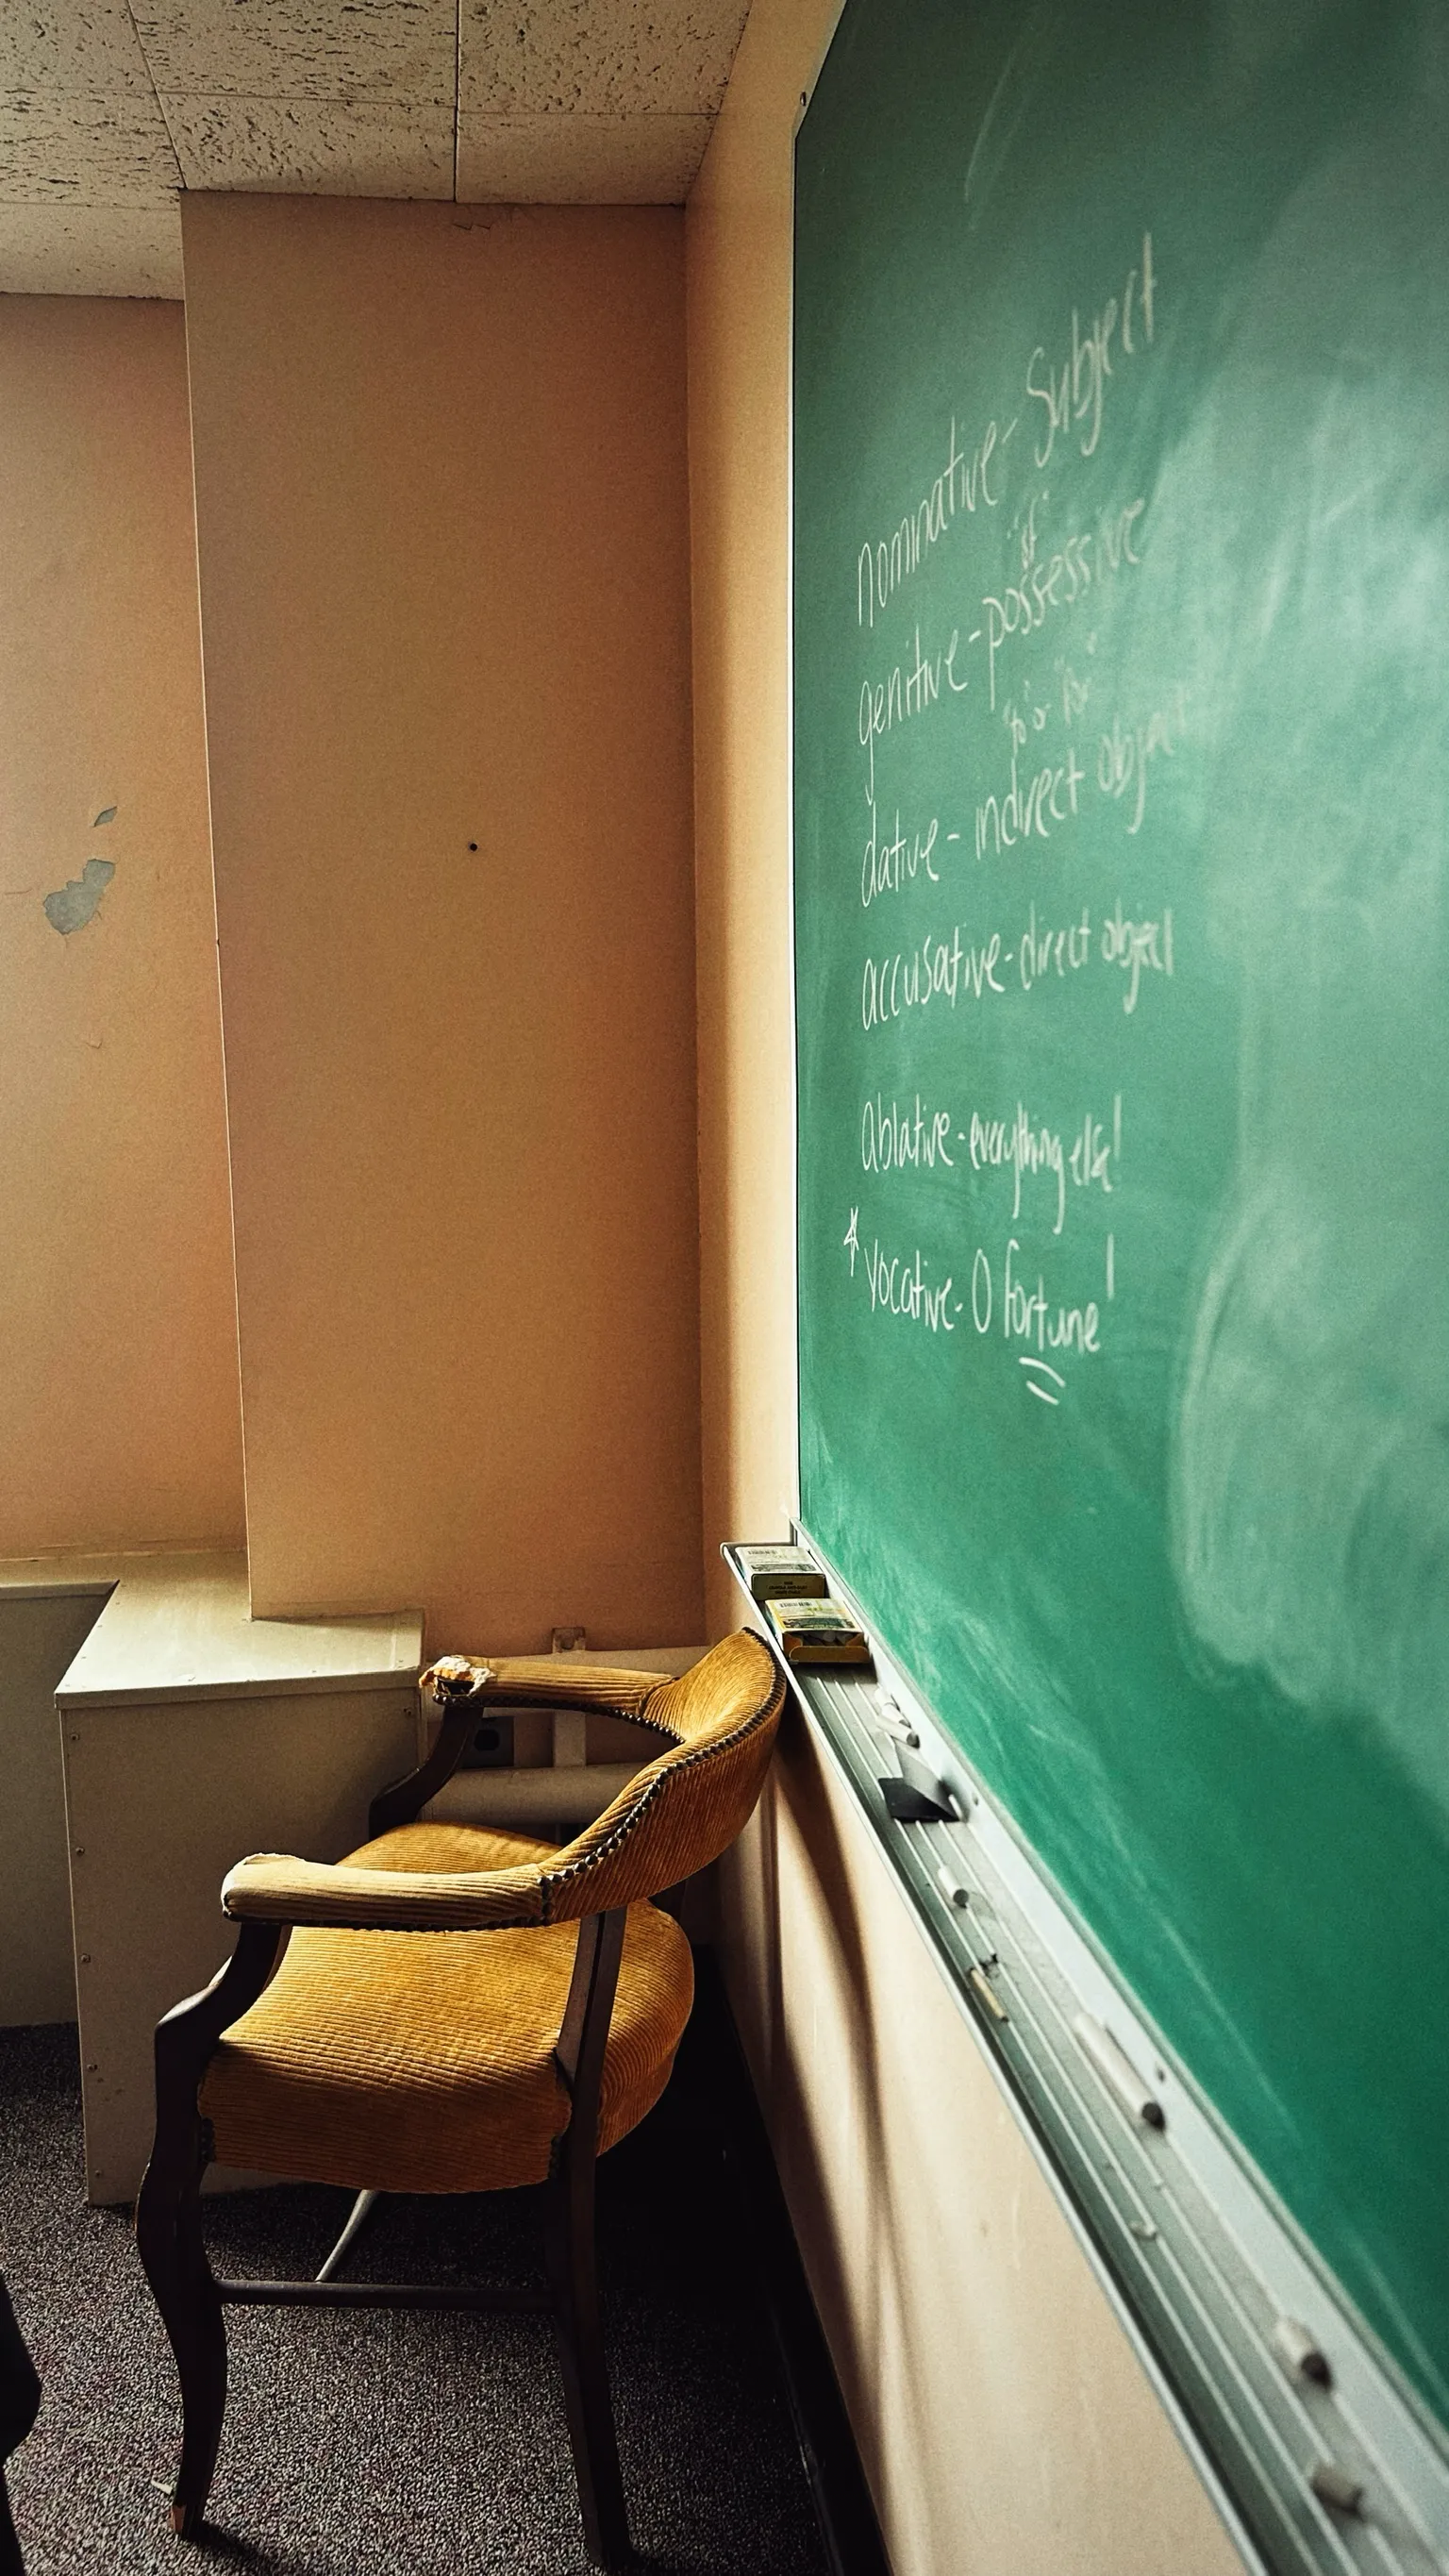 nominative - Subject
"of"
genitive - possessive
"to" or "for"
dative - indirect object
accusative - direct object
Ablative - everything else!
* Vocative - O fortune!